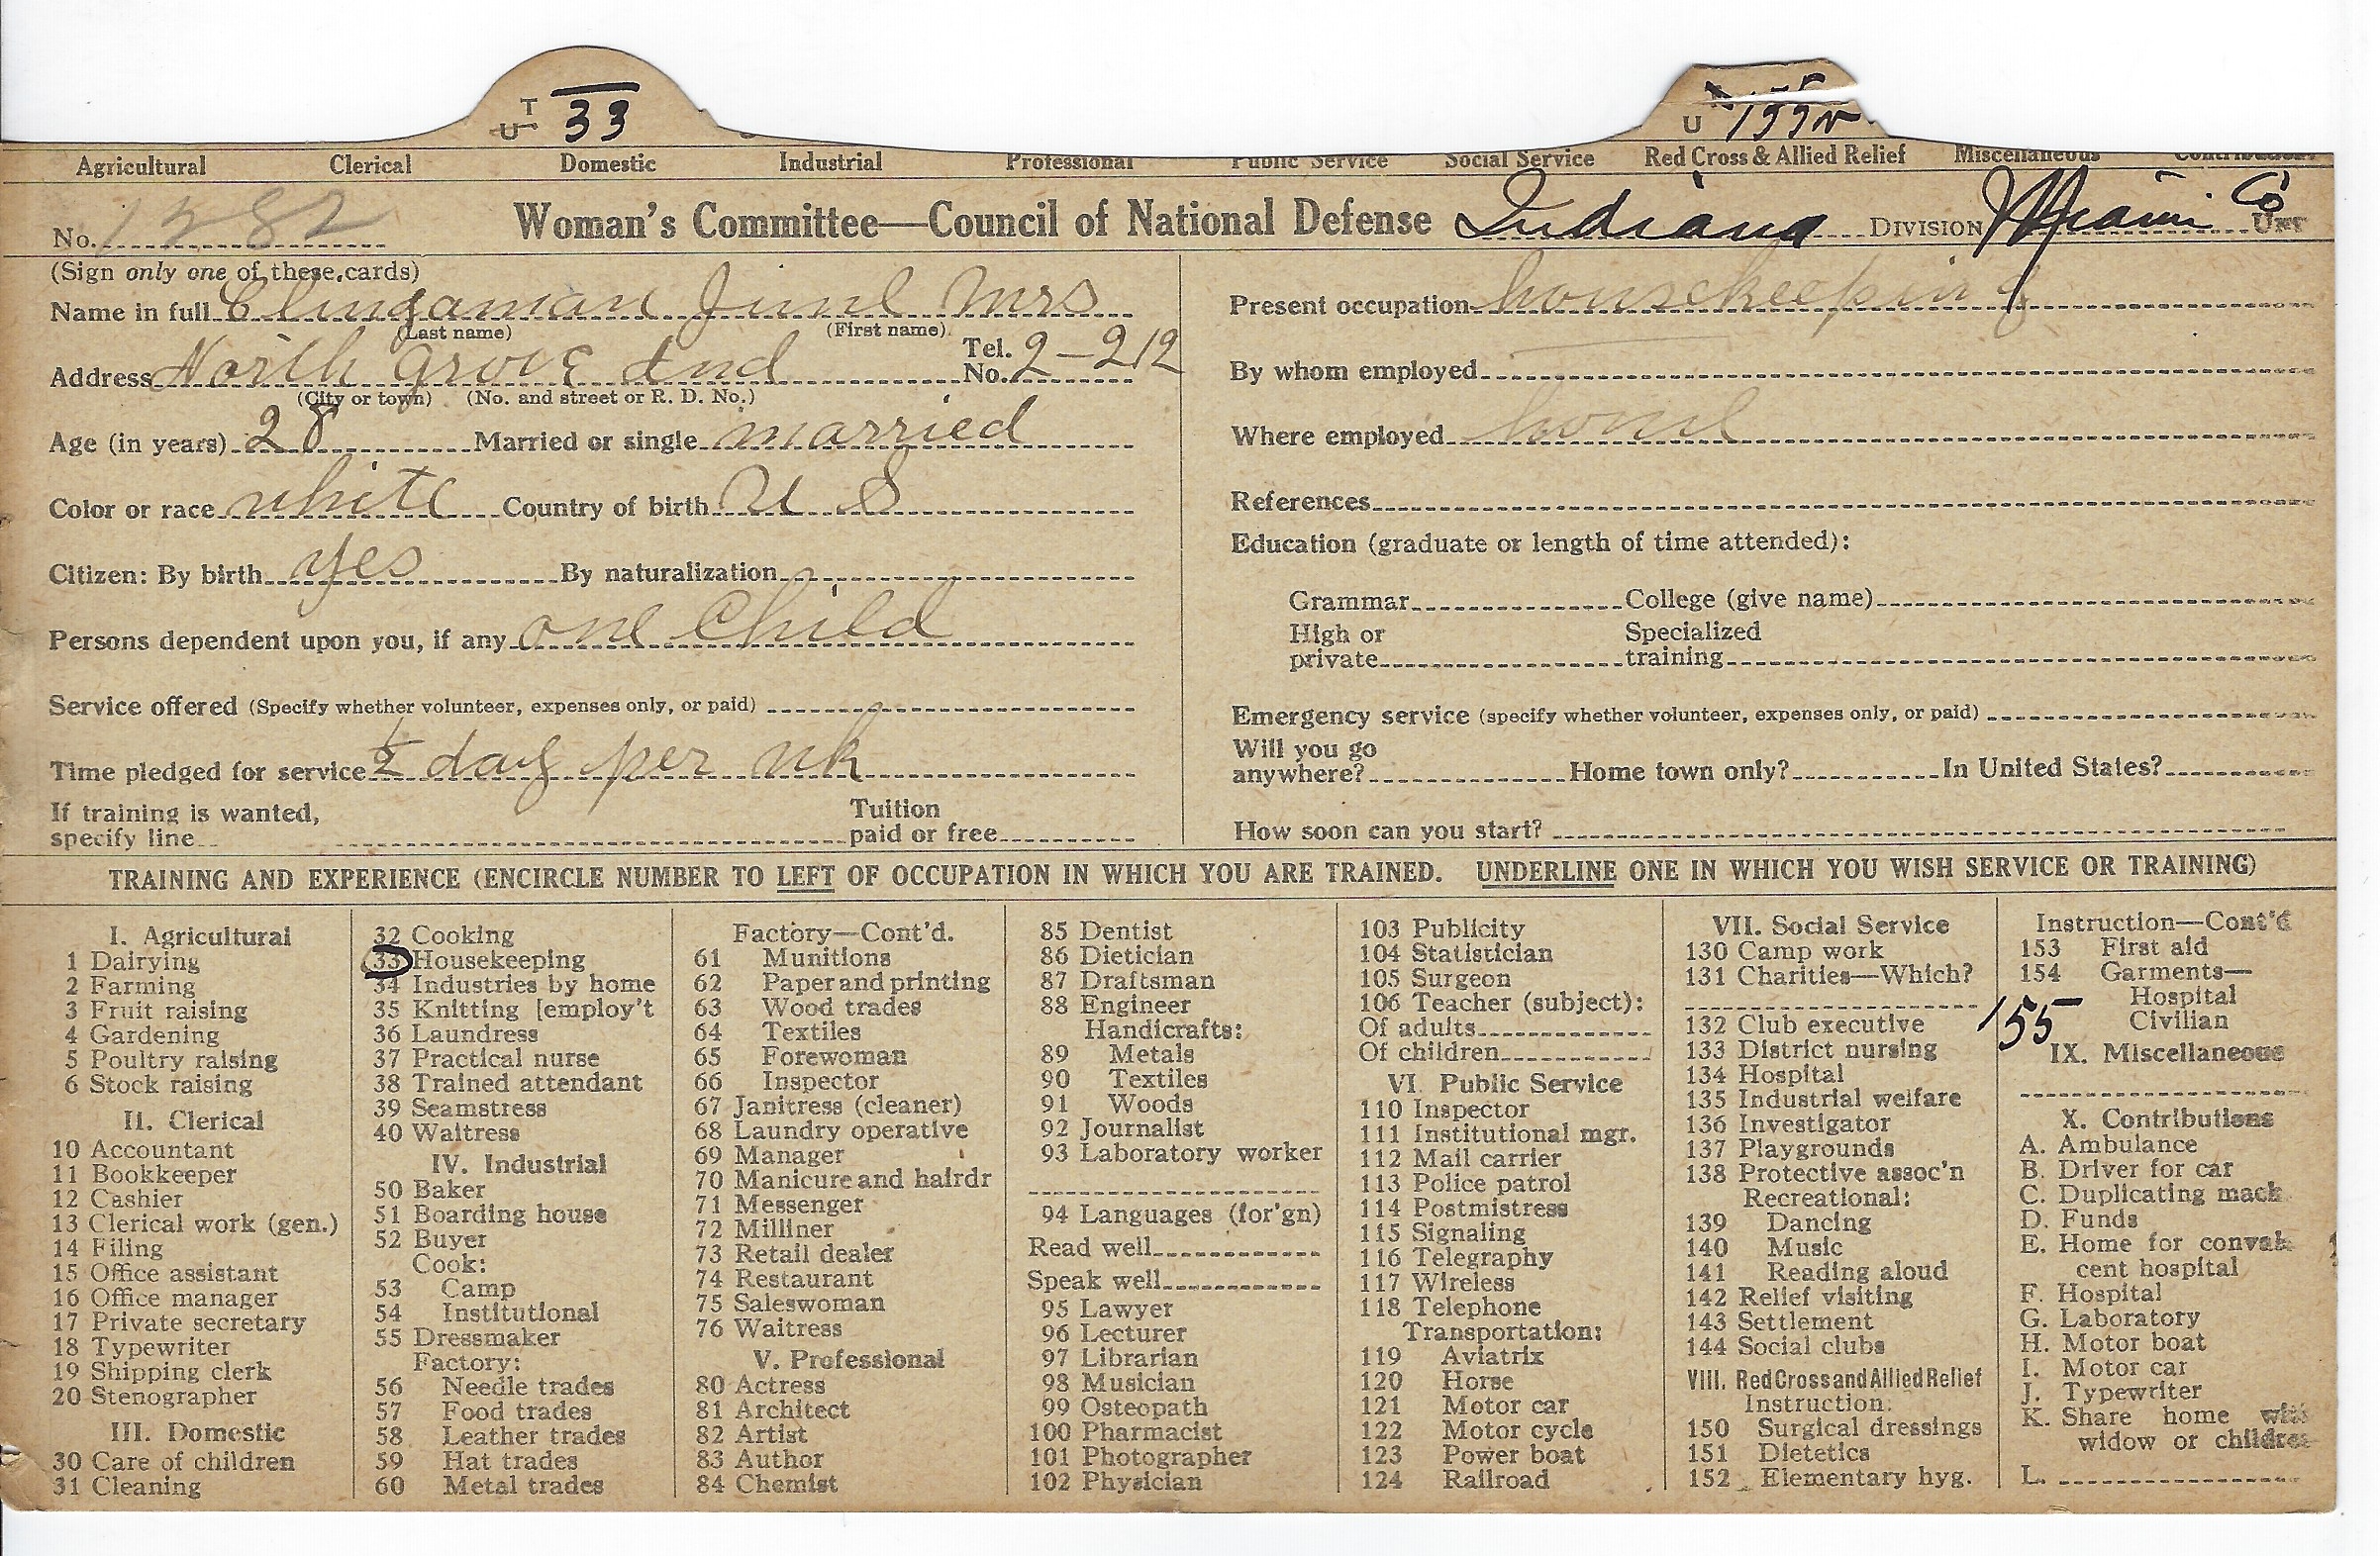 T
U 33
U 155 V
Agricultural Clerical Domestic Industrial Professional Public Service Social Service Red Cross & Allied Relief Miscellaneous Contributions
No. 1382 Woman's Committee—Council of National Defense Indiana DIVISION Miami Co UNIT
(Sign only one of these cards)
Name in full Clingaman Mrs
(Last name) (First name)
Address North Grove Ind Tel. No. 2-212
(City or town) (No. and street or R. D. No.)
Age (in years) 28 Married or single married
Color or race white Country of birth U S
Citizen: By birth yes By naturalization
Persons dependent upon you, if any one Child
Service offered (Specify whether volunteer, expenses only, or paid)
Time pledged for service ½ day per wk
If training is wanted, specify line Tuition paid or free
Present occupation housekeeping
By whom employed
Where employed home
References
Education (graduate or length of time attended):
Grammar College (give name)
High or private Specialized training
Emergency service (specify whether volunteer, expenses only, or paid)
Will you go anywhere? Home town only? In United States?
How soon can you start?
TRAINING AND EXPERIENCE (ENCIRCLE NUMBER TO LEFT OF OCCUPATION IN WHICH YOU ARE TRAINED. UNDERLINE ONE IN WHICH YOU WISH SERVICE OR TRAINING)
I. Agricultural
1 Dairying
2 Farming
3 Fruit raising
4 Gardening
5 Poultry raising
6 Stock raising
II. Clerical
10 Accountant
11 Bookkeeper
12 Cashier
13 Clerical work (gen.)
14 Filing
15 Office assistant
16 Office manager
17 Private secretary
18 Typewriter
19 Shipping clerk
20 Stenographer
III. Domestic
30 Care of children
31 Cleaning
32 Cooking
33 Housekeeping
34 Industries by home
35 Knitting [employ't
36 Laundress
37 Practical nurse
38 Trained attendant
39 Seamstress
40 Waitress
IV. Industrial
50 Baker
51 Boarding house
52 Buyer
Cook:
53 Camp
54 Institutional
55 Dressmaker
Factory:
56 Needle trades
57 Food trades
58 Leather trades
59 Hat trades
60 Metal trades
Factory—Cont'd.
61 Munitions
62 Paper and printing
63 Wood trades
64 Textiles
65 Forewoman
66 Inspector
67 Janitress (cleaner)
68 Laundry operative
69 Manager
70 Manicure and hairdr
71 Messenger
72 Milliner
73 Retail dealer
74 Restaurant
75 Saleswoman
76 Waitress
V. Professional
80 Actress
81 Architect
82 Artist
83 Author
84 Chemist
85 Dentist
86 Dietician
87 Draftsman
88 Engineer
Handicrafts:
89 Metals
90 Textiles
91 Woods
92 Journalist
93 Laboratory worker
94 Languages (for'gn)
Read well
Speak well
95 Lawyer
96 Lecturer
97 Librarian
98 Musician
99 Osteopath
100 Pharmacist
101 Photographer
102 Physician
103 Publicity
104 Statistician
105 Surgeon
106 Teacher (subject):
Of adults
Of children
VI. Public Service
110 Inspector
111 Institutional mgr.
112 Mail carrier
113 Police patrol
114 Postmistress
115 Signaling
116 Telegraphy
117 Wireless
118 Telephone
Transportation:
119 Aviatrix
120 Horse
121 Motor car
122 Motor cycle
123 Power boat
124 Railroad
VII. Social Service
130 Camp work
131 Charities—Which?
132 Club executive
133 District nursing
134 Hospital
135 Industrial welfare
136 Investigator
137 Playgrounds
138 Protective assoc'n
Recreational:
139 Dancing
140 Music
141 Reading aloud
142 Relief visiting
143 Settlement
144 Social clubs
VIII. Red Cross and Allied Relief
Instruction:
150 Surgical dressings
151 Dietetics
152 Elementary hyg.
Instruction—Cont'd
153 First aid
154 Garments—
Hospital
155 Civilian
IX. Miscellaneous
X. Contributions
A. Ambulance
B. Driver for car
C. Duplicating mach
D. Funds
E. Home for conval
cent hospital
F. Hospital
G. Laboratory
H. Motor boat
I. Motor car
J. Typewriter
K. Share home with
widow or children
L.